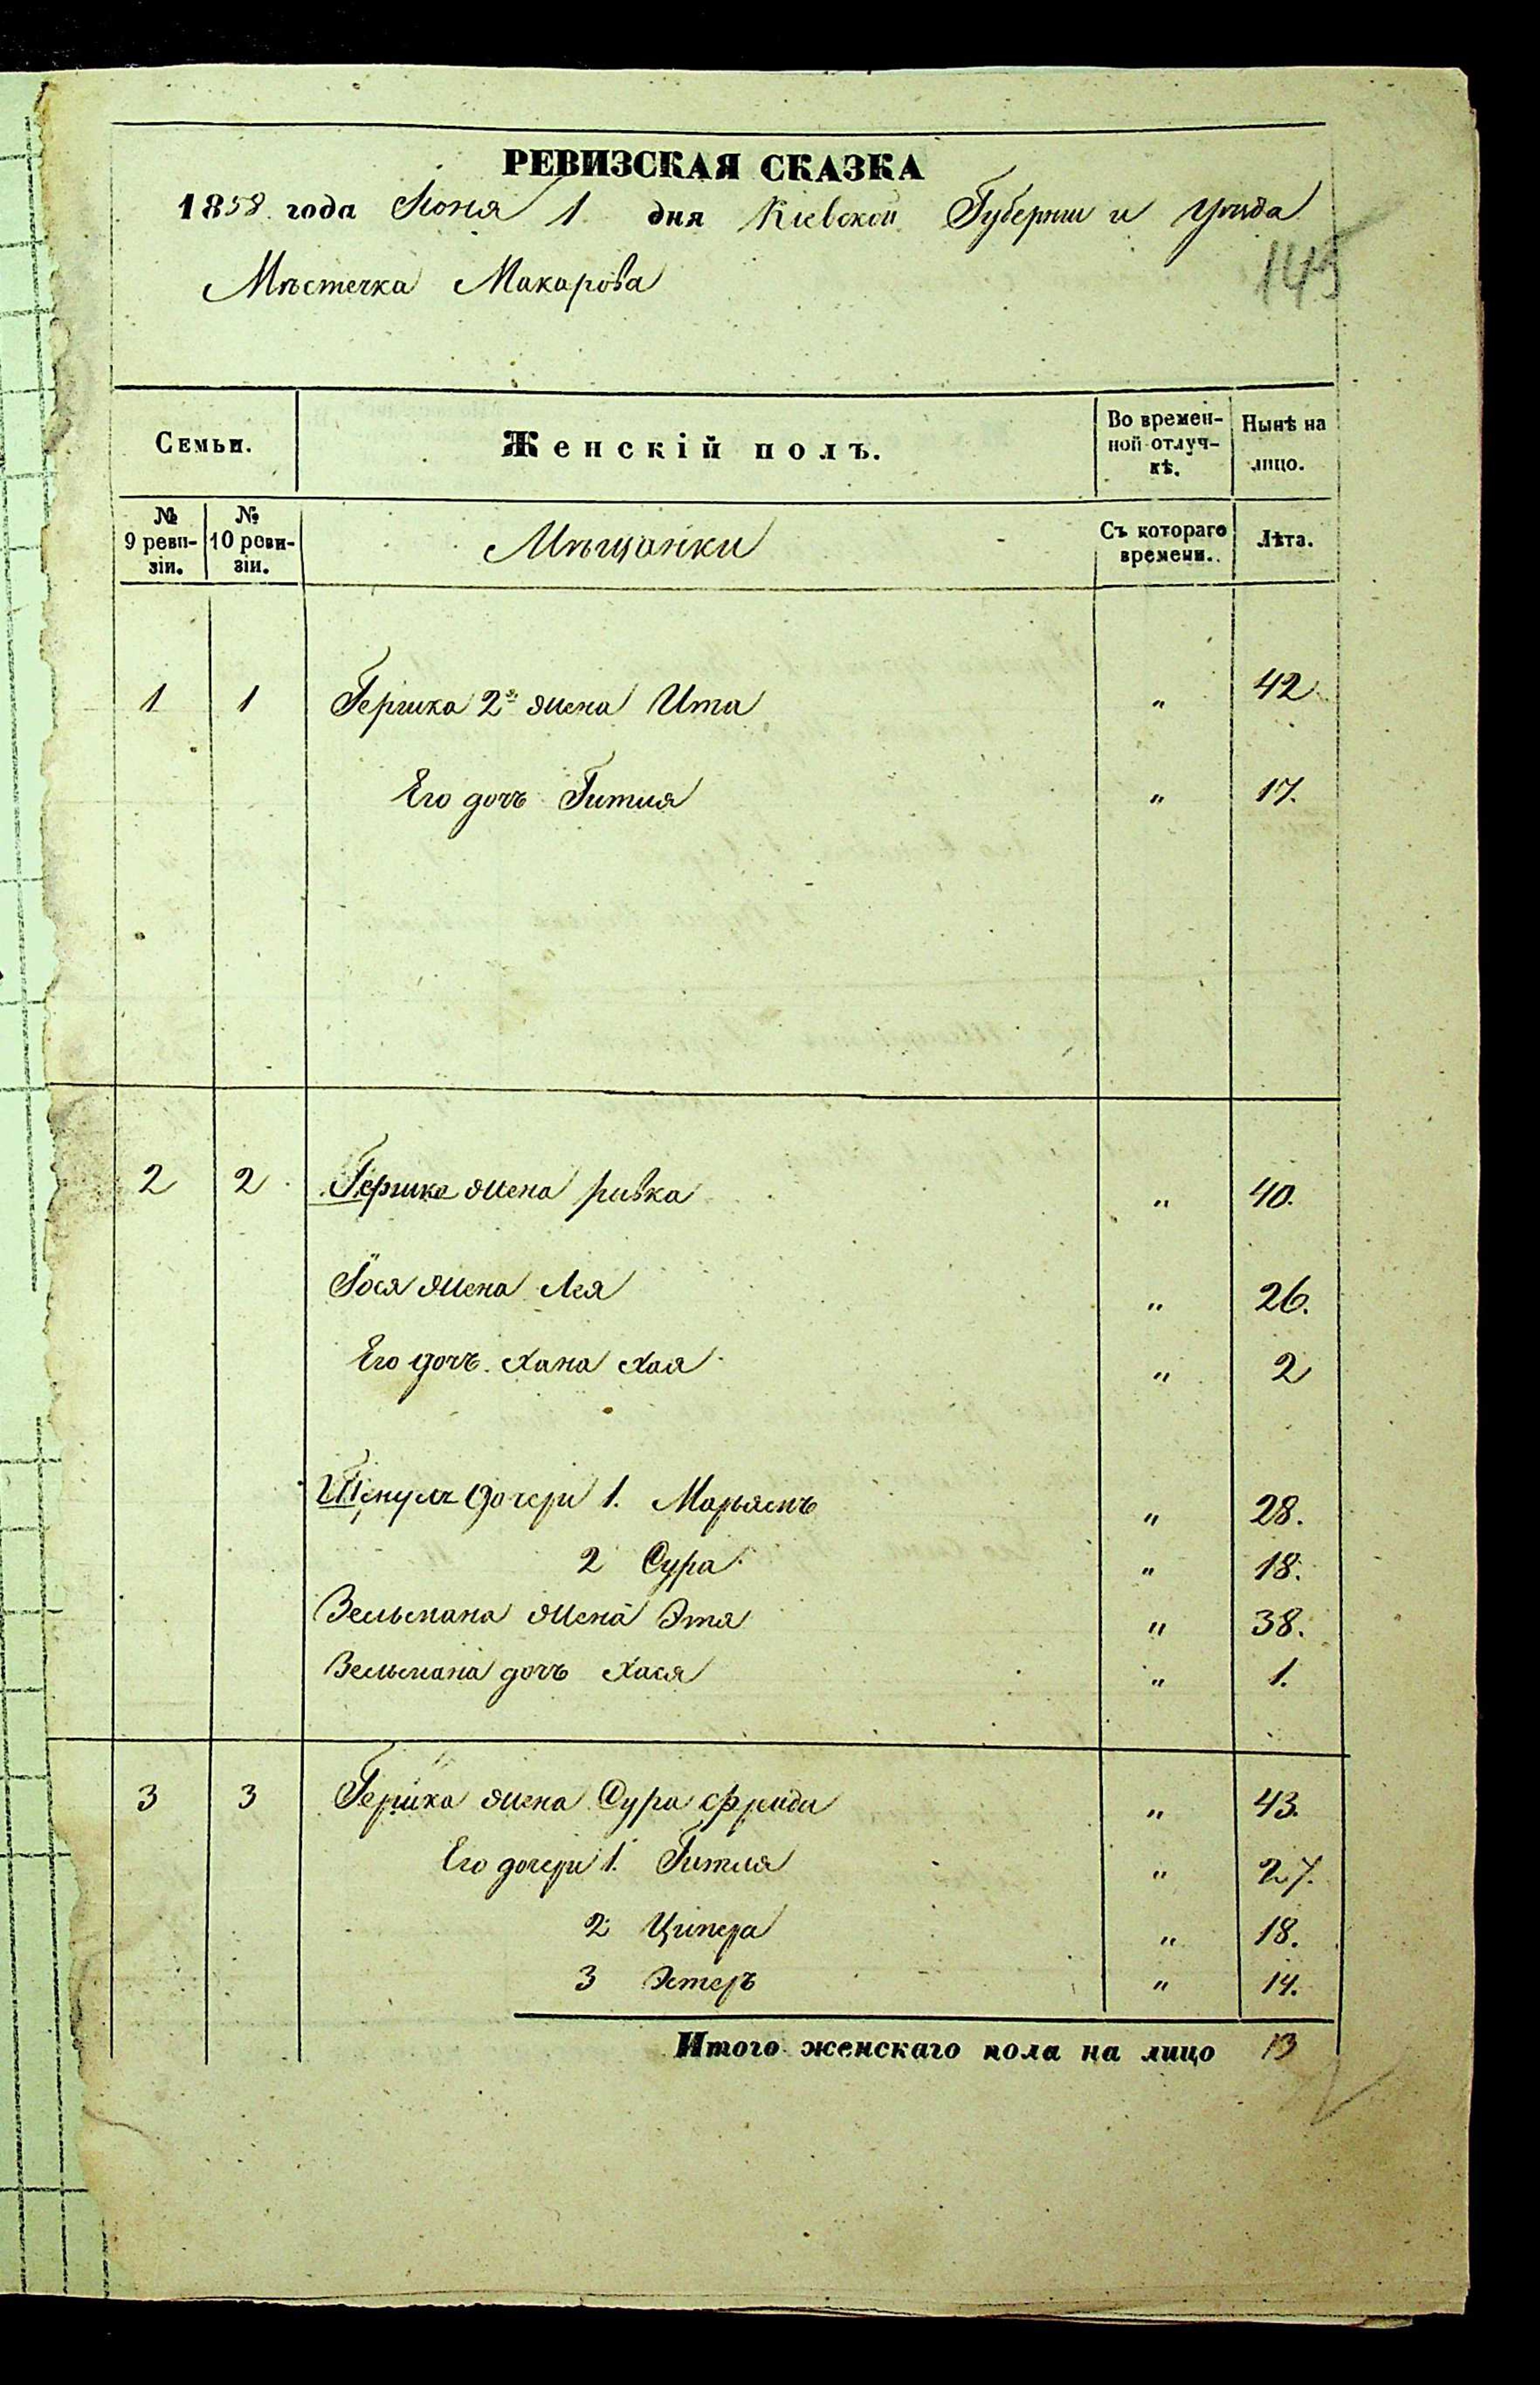 РЕВИЗСКАЯ СКАЗКА
1858 года Іюня 1 дня Кіевской Губерніи и уѣзда
145
Мѣстечка Макарова
Семьи. Женскій полъ. Во времен-ной отлуч-кѣ. Нынѣ на лицо.
№ 9 реви-зіи. № 10 реви-зіи. Мѣщанки Съ котораго времени. Лѣта.
1 1 Гершка 2я жена Ита " 42
Его дочь Гитля " 17.
2 2 Гершка жена ривка " 40.
Іося жена Лея " 26.
Его дочь Хана Хая " 2
дочери 1. Марьямъ " 28.
2 Сура " 18.
Зельмана жена Этя " 38.
Зельмана дочь Хася " 1.
3 3 Гершка жена Сура фрида " 43.
Его дочери 1. Гитля " 27.
2 Ципера " 18.
3 Эстеръ " 14.
Итого женскаго пола на лицо 13